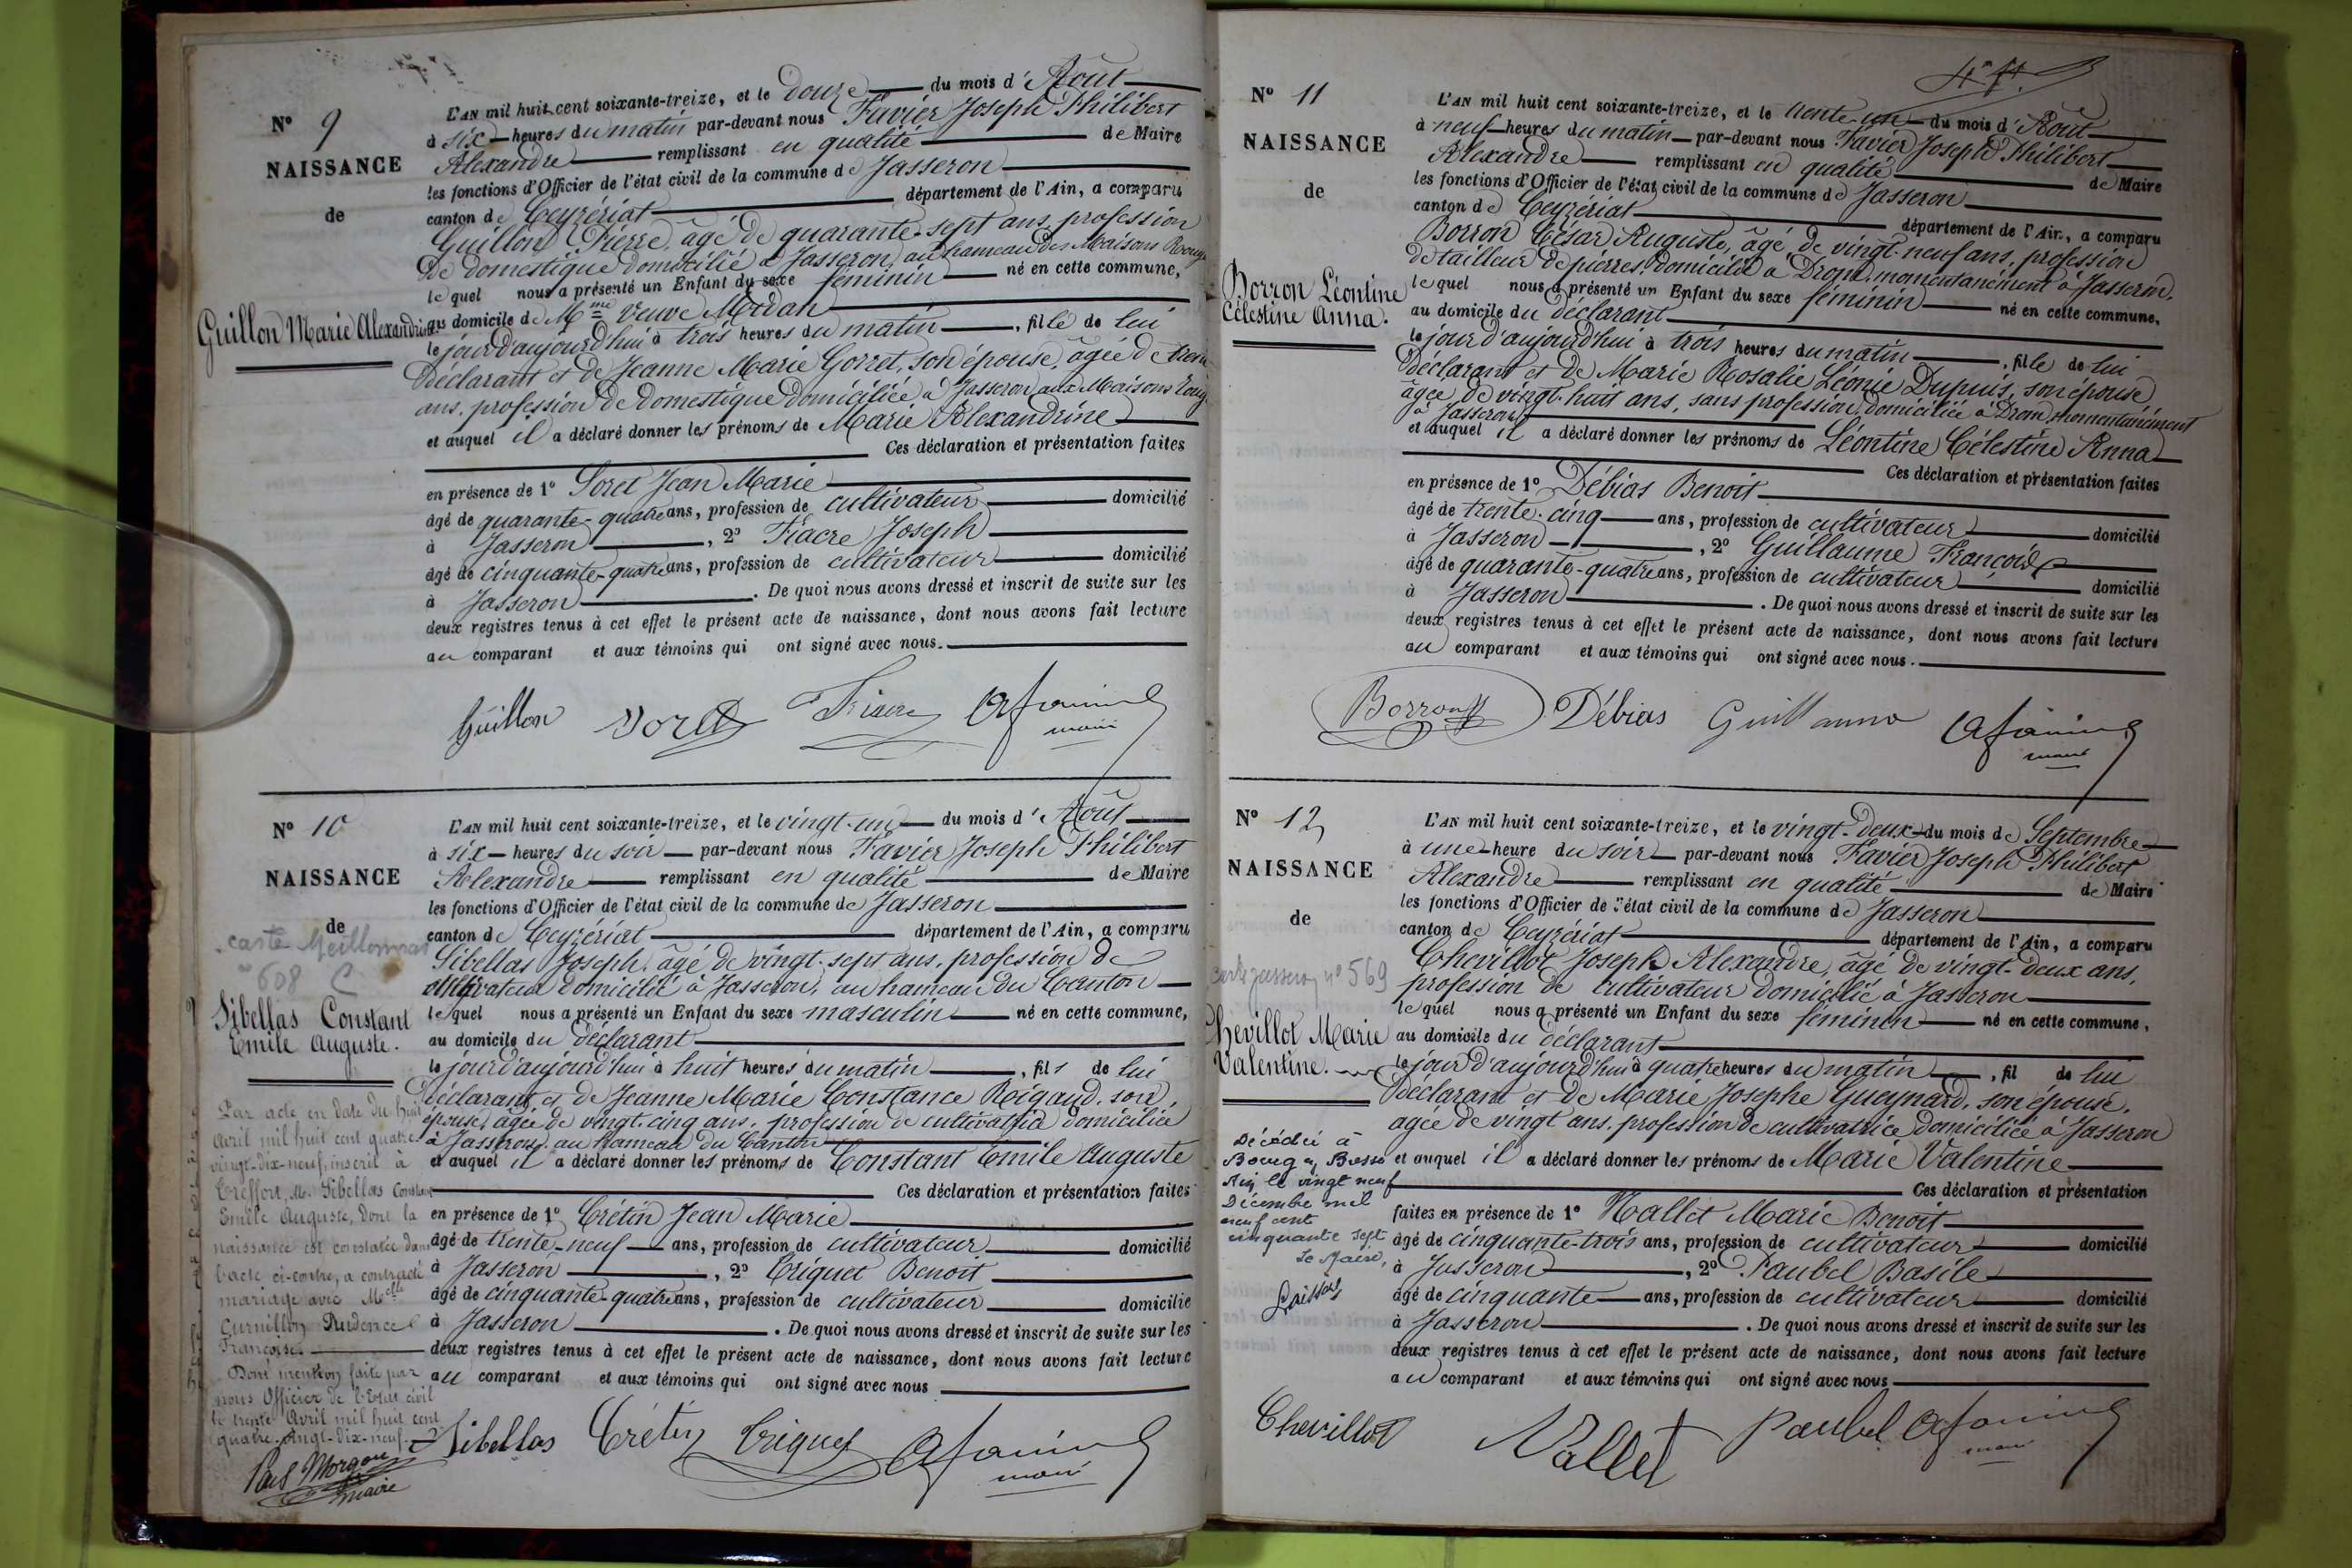 N° 9
NAISSANCE
de
Guillon Marie Alexandrine
L'AN mil huit cent soixante-treize, et le douze du mois d'Août
à six heures du matin par-devant nous Favier Joseph Philibert
Alexandre remplissant en qualité de Maire
les fonctions d'Officier de l'état civil de la commune de Jasseron
canton de Ceyzériat département de l'Ain, a comparu
Guillon Pierre, âgé de quarante-sept ans, profession
de domestique domicilié à Jasseron, au hameau des Maisons Rouges
lequel nous a présenté un Enfant du sexe féminin né en cette commune,
au domicile de Mme Veuve
le jour d'aujourd'hui à trois heures du matin, fille de lui
déclarant et de Jeanne Marie Gorret, son épouse, âgée de trente
ans, profession de domestique domiciliée à Jasseron aux Maisons Rouges
et auquel il a déclaré donner les prénoms de Marie Alexandrine
Ces déclaration et présentation faites
en présence de 1° Soret Jean Marie
âgé de quarante-quatre ans, profession de cultivateur domicilié
à Jasseron, 2° Fiacre Joseph
âgé de cinquante-quatre ans, profession de cultivateur domicilié
à Jasseron. De quoi nous avons dressé et inscrit de suite sur les
deux registres tenus à cet effet le présent acte de naissance, dont nous avons fait lecture
au comparant et aux témoins qui ont signé avec nous.
Guillon Soret Fiacre A favier
maire
N° 10
NAISSANCE
de
carte Meillonnas
608 C
Sibellas Constant
Emile Auguste.
L'AN mil huit cent soixante-treize, et le vingt-un du mois d'Août
à six heures du soir par-devant nous Favier Joseph Philibert
Alexandre remplissant en qualité de Maire
les fonctions d'Officier de l'état civil de la commune de Jasseron
canton de Ceyzériat département de l'Ain, a comparu
Sibellas Joseph, âgé de vingt-sept ans, profession de
cultivateur domicilié à Jasseron, au hameau du Canton
lequel nous a présenté un Enfant du sexe masculin né en cette commune,
au domicile du déclarant
le jour d'aujourd'hui à huit heures du matin, fils de lui
déclarant et de Jeanne Marie Constance Roigaud, son
épouse, âgée de vingt-cinq ans, profession de cultivatrice domiciliée
à Jasseron au hameau du Canton
et auquel il a déclaré donner les prénoms de Constant Emile Auguste
Ces déclaration et présentation faites
en présence de 1° Crétin Jean Marie
âgé de trente-neuf ans, profession de cultivateur domicilié
à Jasseron, 2° Criquet Benoit
âgé de cinquante-quatre ans, profession de cultivateur domicilié
à Jasseron. De quoi nous avons dressé et inscrit de suite sur les
deux registres tenus à cet effet le présent acte de naissance, dont nous avons fait lecture
au comparant et aux témoins qui ont signé avec nous
Sibellas Crétin Criquet A favier
maire
Par acte en date du huit
avril mil huit cent quatre
vingt-dix-neuf, inscrit à
Treffort, M. Sibellas Constant
Emile Auguste, dont la
naissance est constatée dans
l'acte ci-contre, a contracté
mariage avec Melle
Curnillon Prudence
Françoise
Dont mention faite par
nous Officier de l'Etat civil
le trente Avril mil huit cent
quatre-vingt-dix-neuf.
Paul Morgon
maire
N° 11
NAISSANCE
de
Borron Léontine
Célestine Anna.
L'AN mil huit cent soixante-treize, et le trente-un du mois d'Août
à neuf heures du matin par-devant nous Favier Joseph Philibert
Alexandre remplissant en qualité de Maire
les fonctions d'Officier de l'état civil de la commune de Jasseron
canton de Ceyzériat département de l'Ain, a comparu
Borron César Auguste, âgé de vingt-neuf ans, profession
de tailleur de pierres, domicilié à Drom, momentanément à Jasseron,
lequel nous a présenté un Enfant du sexe féminin né en cette commune,
au domicile du déclarant
le jour d'aujourd'hui à trois heures du matin, fille de lui
déclarant et de Marie Rosalie Léonie Dupuis, son épouse
âgée de vingt-huit ans, sans profession, domiciliée à Drom, momentanément
à Jasseron
et auquel il a déclaré donner les prénoms de Léontine Célestine Anna
Ces déclaration et présentation faites
en présence de 1° Débias Benoit
âgé de trente-cinq ans, profession de cultivateur domicilié
à Jasseron, 2° Guillaume François
âgé de quarante-quatre ans, profession de cultivateur domicilié
à Jasseron. De quoi nous avons dressé et inscrit de suite sur les
deux registres tenus à cet effet le présent acte de naissance, dont nous avons fait lecture
au comparant et aux témoins qui ont signé avec nous.
Borron Débias Guillaume A favier
maire
N° 12
NAISSANCE
de
carte Jasseron n° 569
Chevillot Marie
Valentine.
L'AN mil huit cent soixante-treize, et le vingt-deux du mois de Septembre
à une heure du soir par-devant nous Favier Joseph Philibert
Alexandre remplissant en qualité de Maire
les fonctions d'Officier de l'état civil de la commune de Jasseron
canton de Ceyzériat département de l'Ain, a comparu
Chevillot Joseph Alexandre, âgé de vingt-deux ans,
profession de cultivateur domicilié à Jasseron
lequel nous a présenté un Enfant du sexe féminin né en cette commune,
au domicile du déclarant
le jour d'aujourd'hui à quatre heures du matin, fil de lui
déclarant et de Marie Josephe Gueynard, son épouse,
agée de vingt ans, profession de cultivatrice domiciliée à Jasseron
et auquel il a déclaré donner les prénoms de Marie Valentine
Ces déclaration et présentation
faites en présence de 1° Nallet Marie Benoit
âgé de cinquante-trois ans, profession de cultivateur domicilié
à Jasseron, 2° Paubel Basile
âgé de cinquante ans, profession de cultivateur domicilié
à Jasseron. De quoi nous avons dressé et inscrit de suite sur les
deux registres tenus à cet effet le présent acte de naissance, dont nous avons fait lecture
au comparant et aux témoins qui ont signé avec nous
Chevillot Nallet Paubel A favier
maire
Décédée à
Bourg en Bresse
Ain le vingt neuf
Décembre mil
neuf cent
cinquante sept
Le Maire,